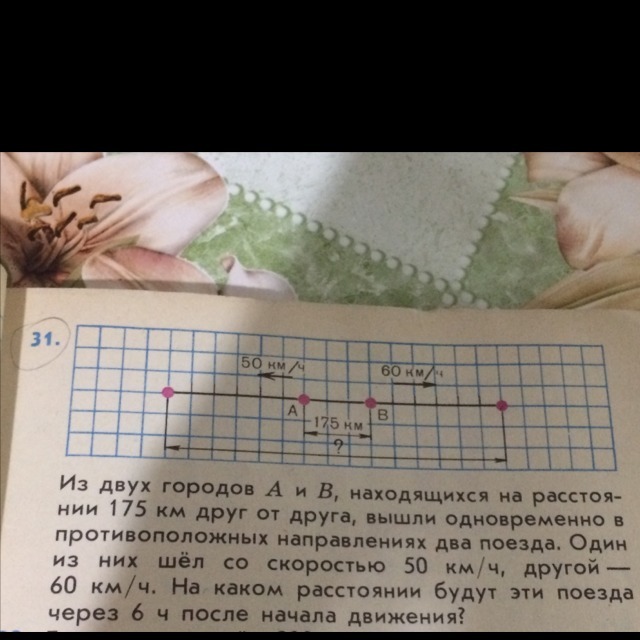 31.
50 км/ч 60 км/ч
А В
175 км
?
Из двух городов А и В, находящихся на расстоя-
нии 175 км друг от друга, вышли одновременно в
противоположных направлениях два поезда. Один
из них шёл со скоростью 50 км/ч, другой —
60 км/ч. На каком расстоянии будут эти поезда
через 6 ч после начала движения?